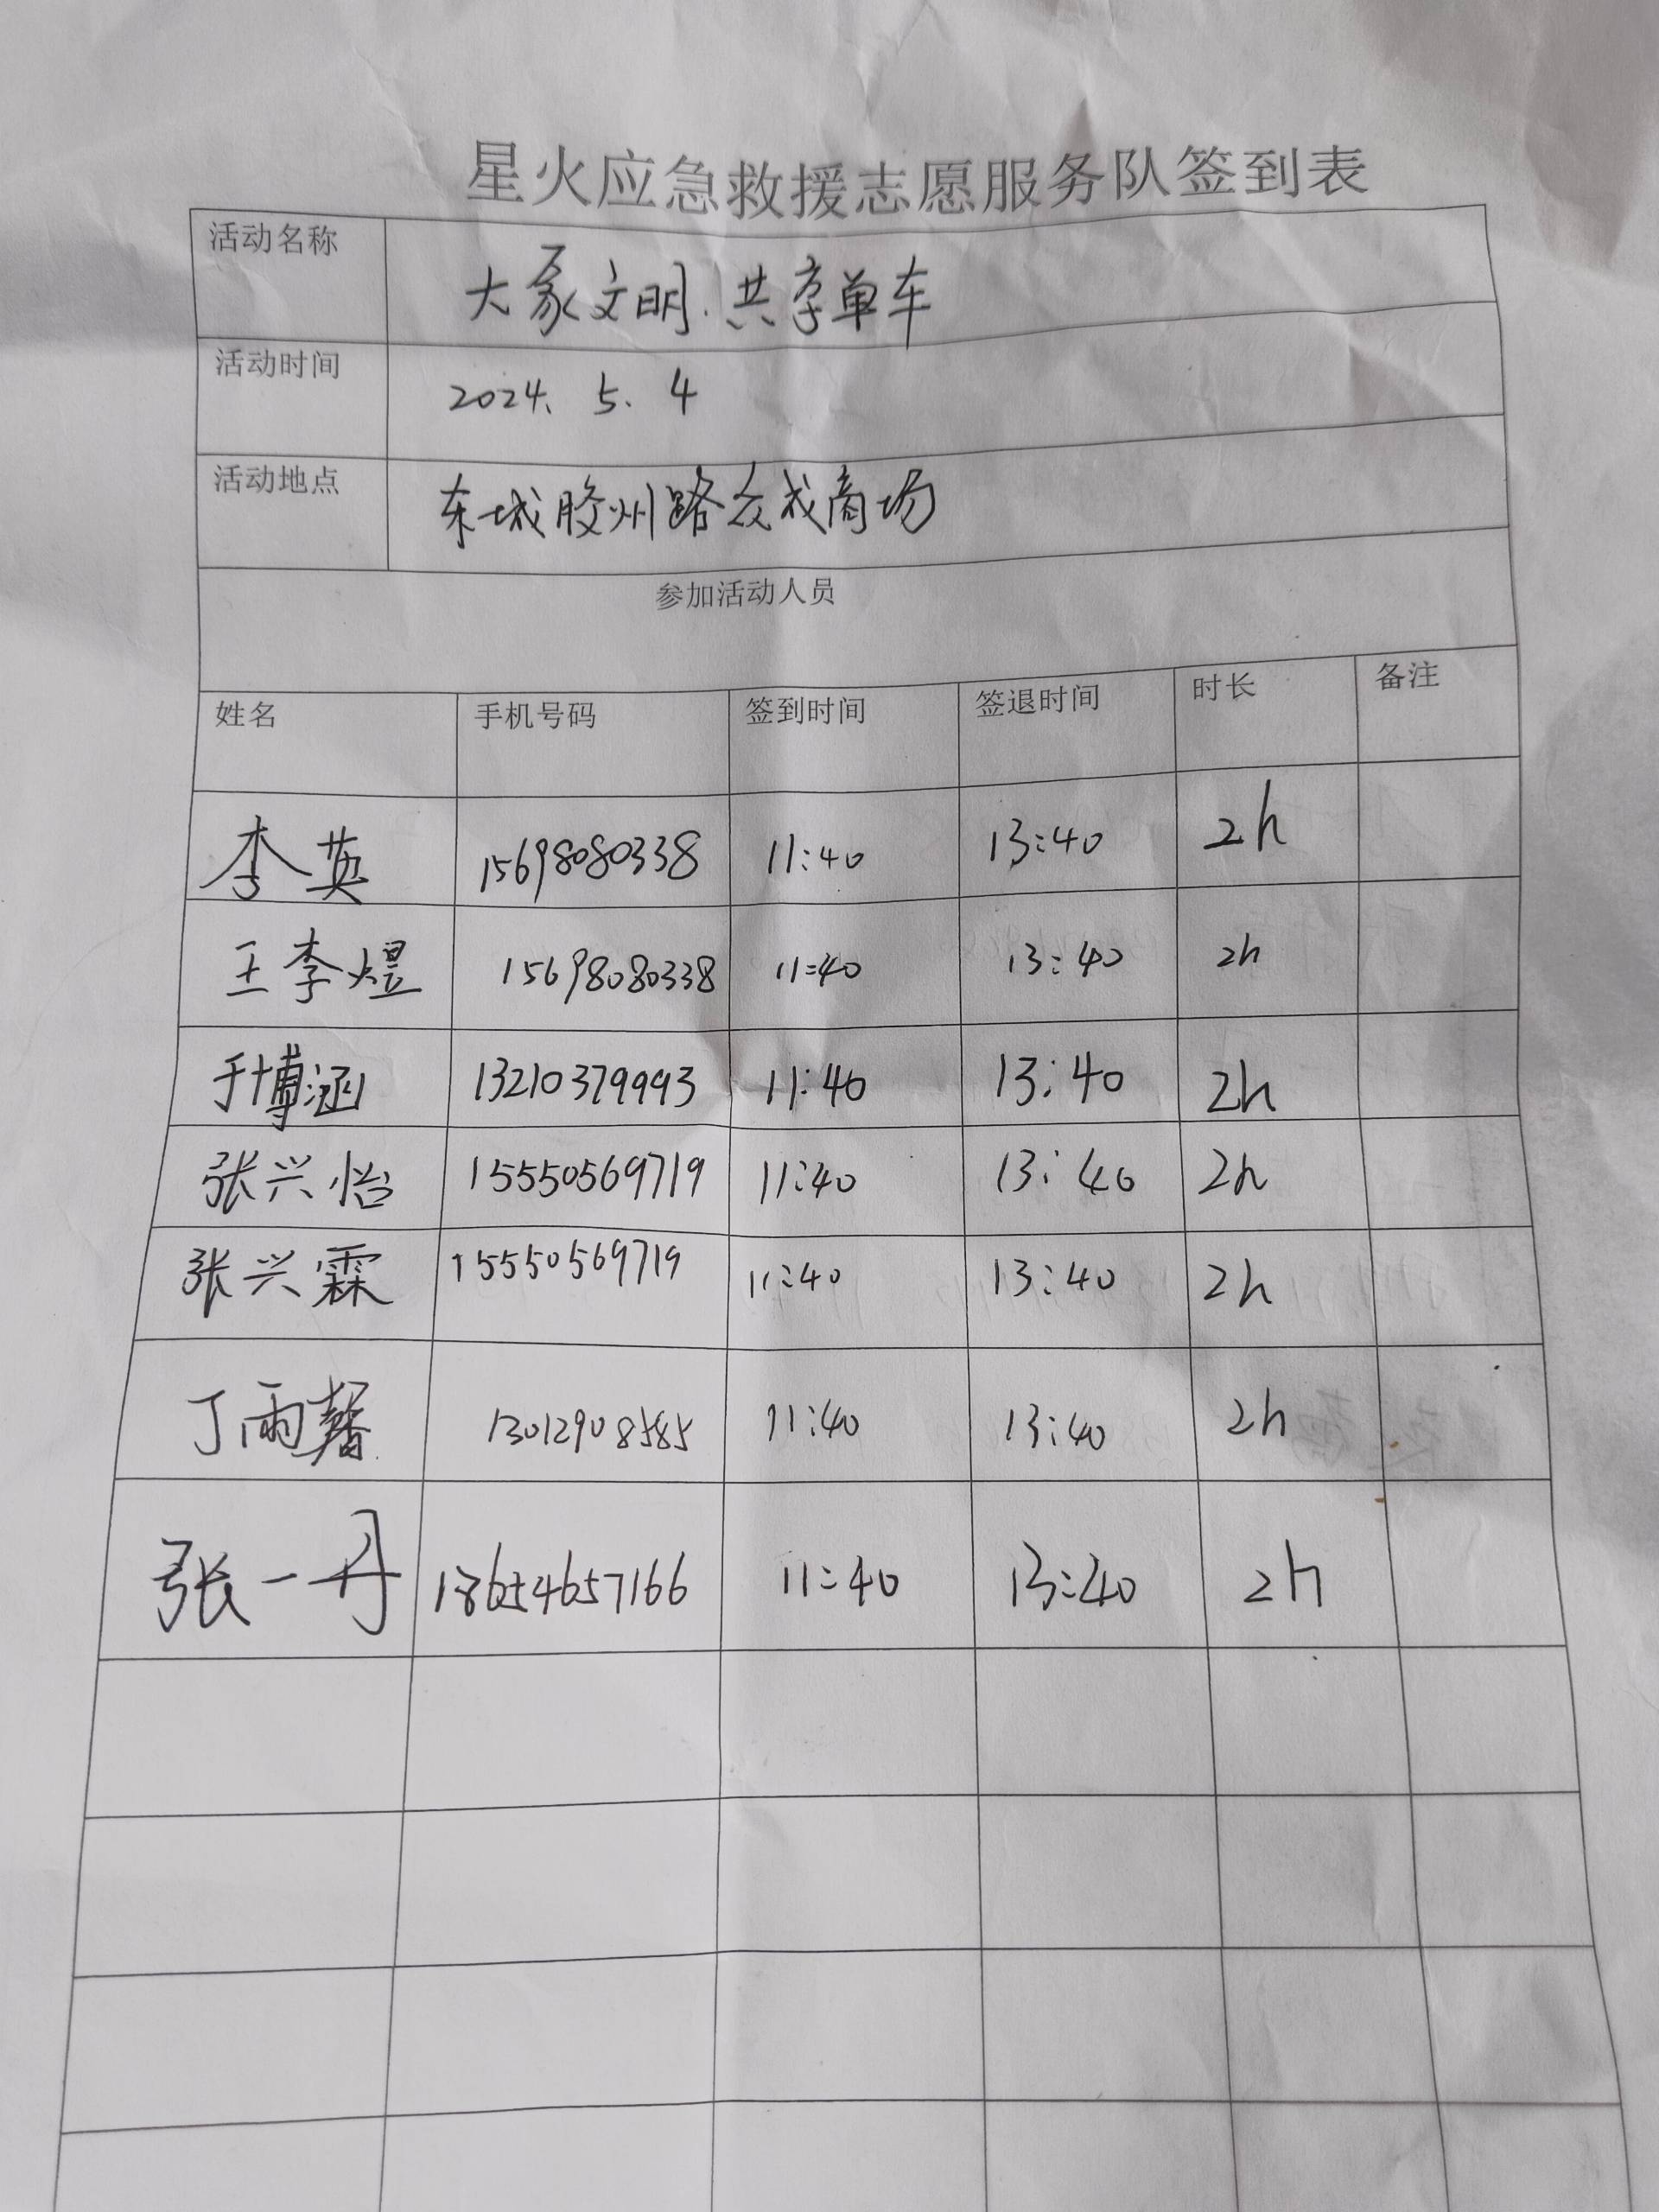 星火应急救援志愿服务队签到表
活动名称 大家文明.共享单车
活动时间 2024. 5. 4
活动地点 东城胶州路众成商场
参加活动人员
姓名 手机号码 签到时间 签退时间 时长 备注
李英 15698080338 11:40 13:40 2h
王李煜 15698080338 11:40 13:40 2h
于博涵 13210379993 11:40 13:40 2h
张兴怡 15550569719 11:40 13:40 2h
张兴霖 15550569719 11:40 13:40 2h
丁雨馨 13012908585 11:40 13:40 2h
张一丹 18654657166 11:40 13:40 2h